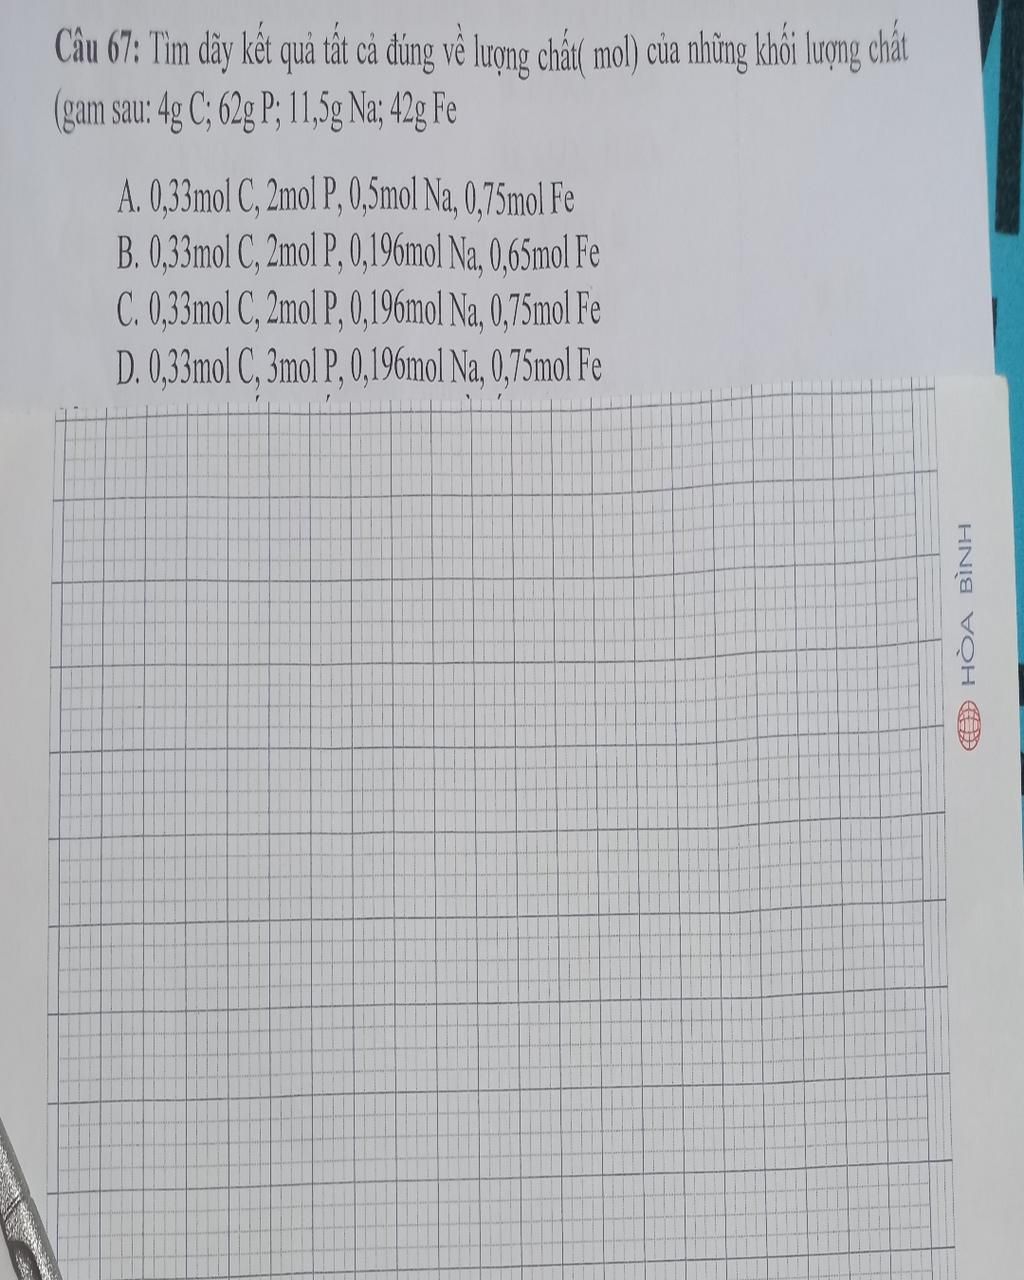 Câu 67: Tìm dãy kết quả tất cả đúng về lượng chất( mol) của những khối lượng chất
(gam sau: 4g C; 62g P; 11,5g Na; 42g Fe
A. 0,33mol C, 2mol P, 0,5mol Na, 0,75mol Fe
B. 0,33mol C, 2mol P, 0,196mol Na, 0,65mol Fe
C. 0,33mol C, 2mol P, 0,196mol Na, 0,75mol Fe
D. 0,33mol C, 3mol P, 0,196mol Na, 0,75mol Fe
HÒA BÌNH